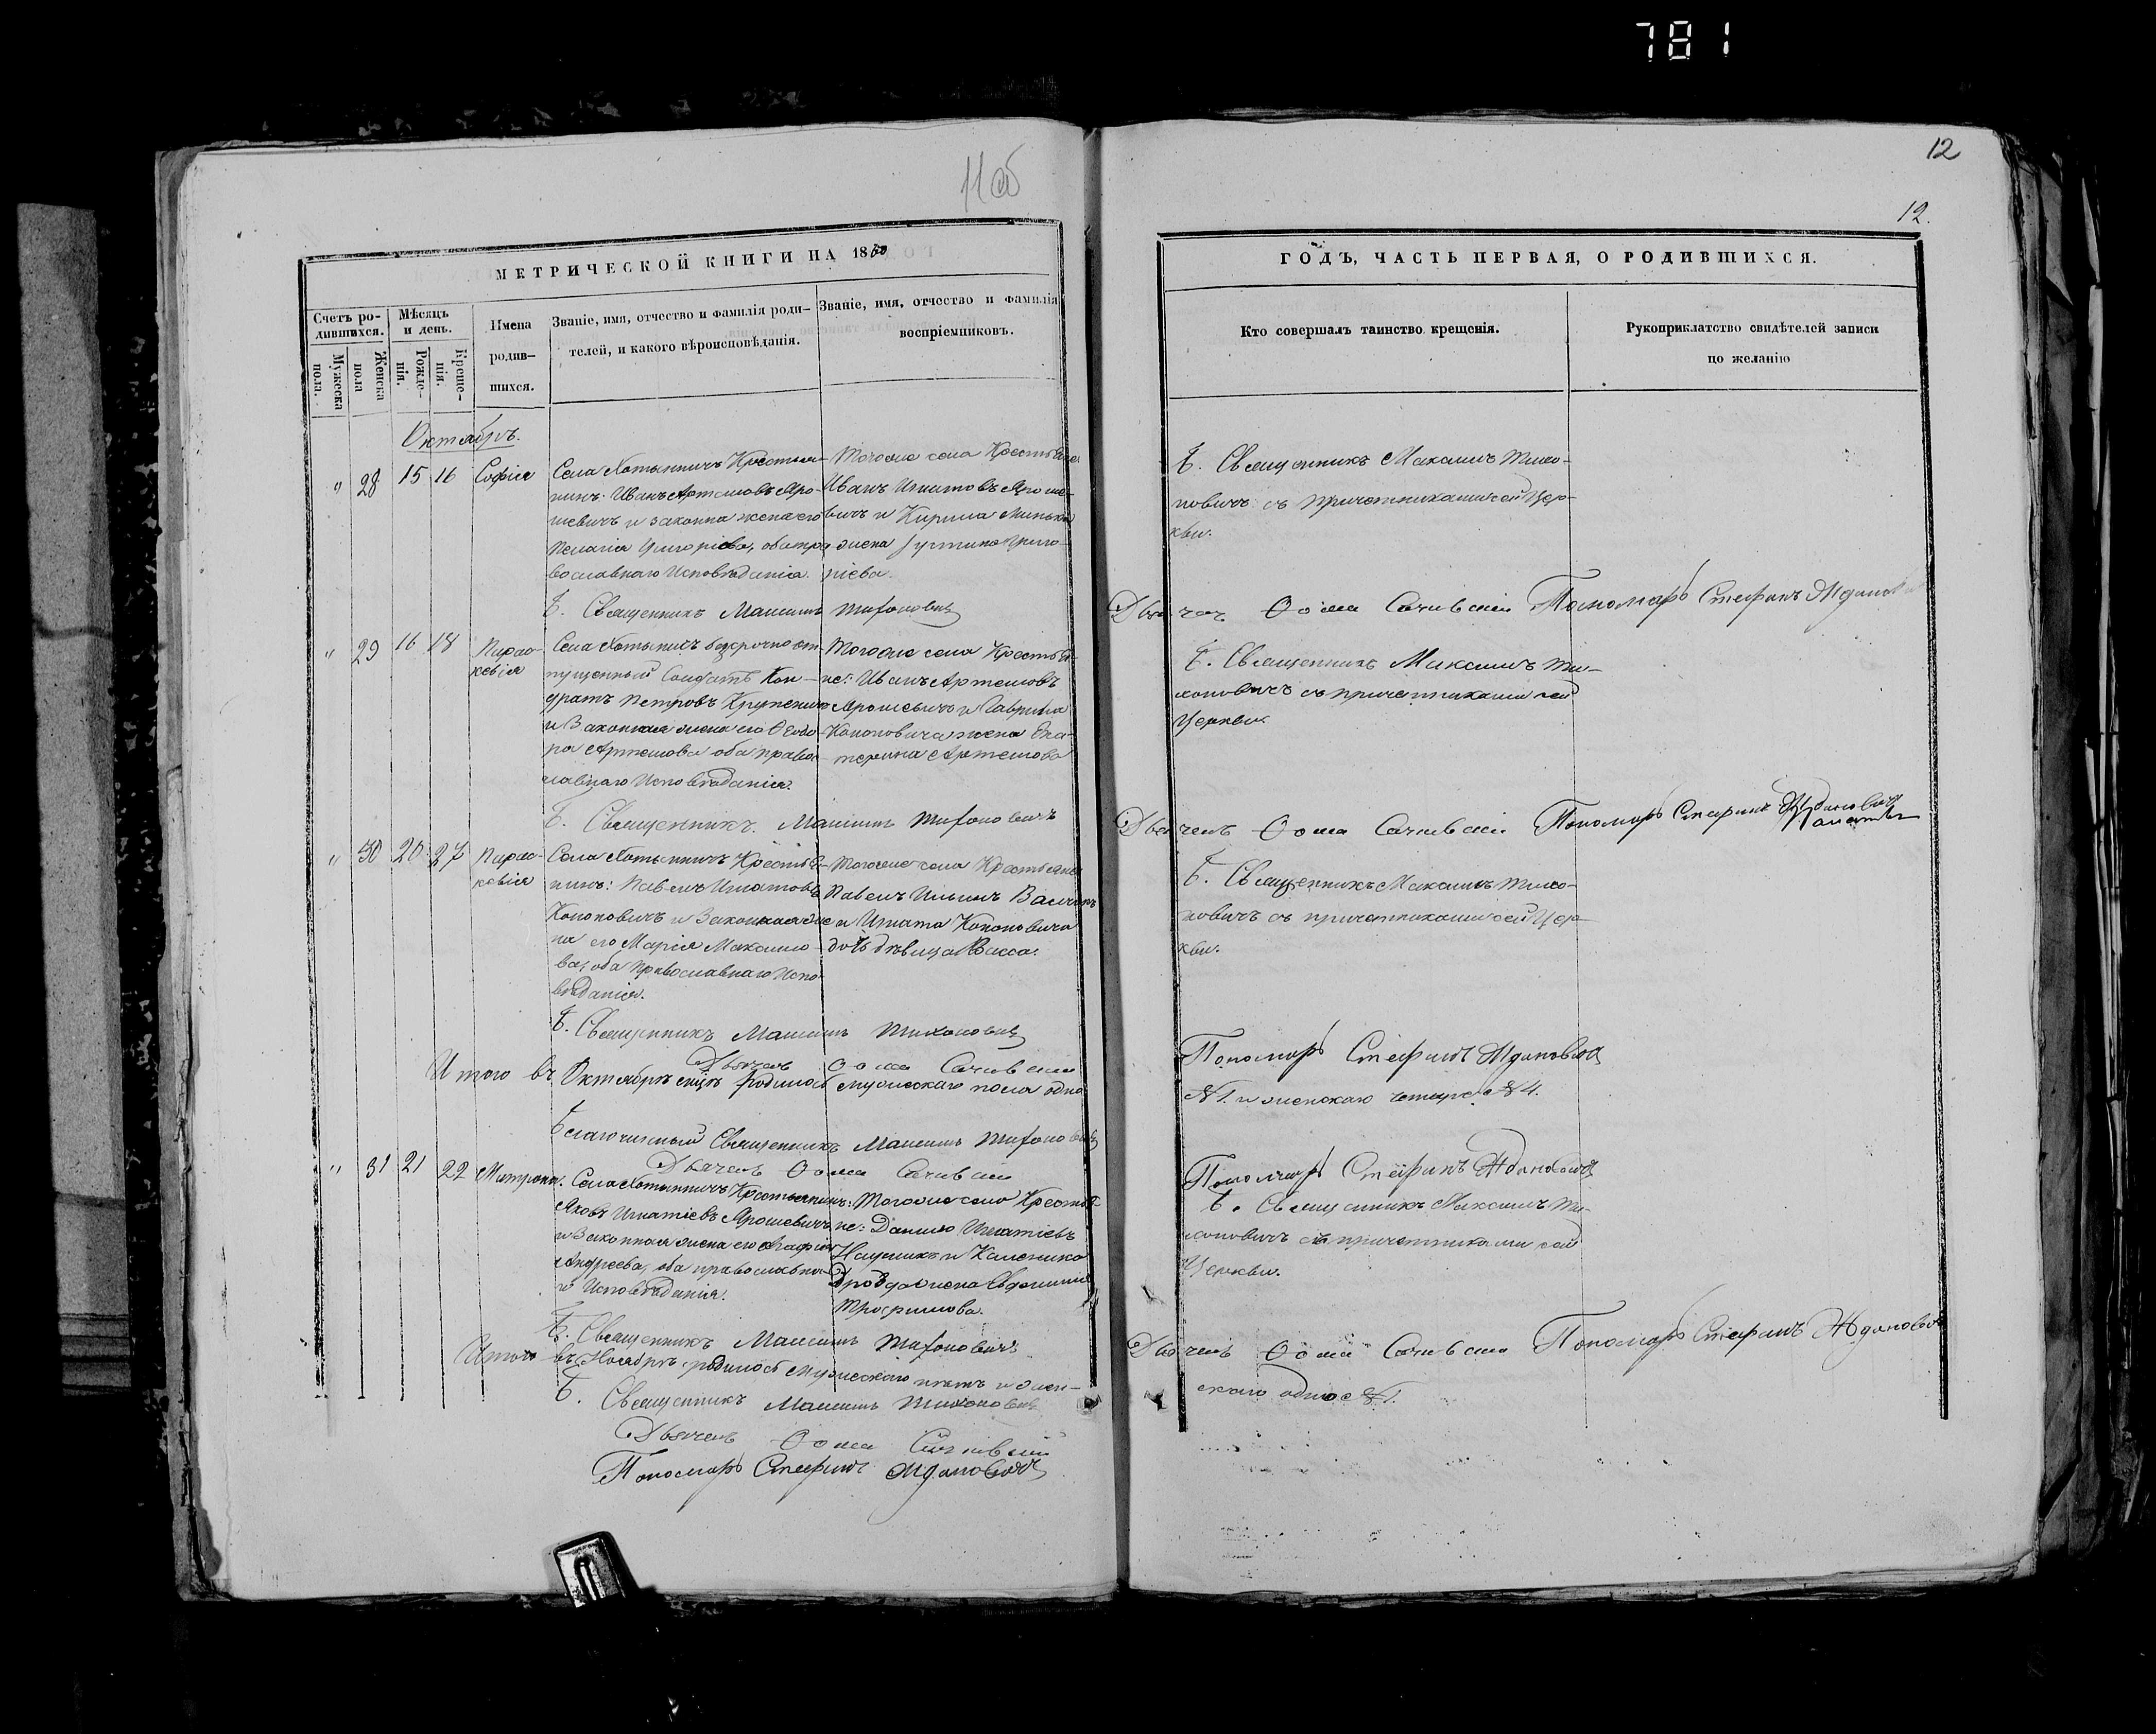 781
12
11 об
12.
МЕТРИЧЕСКОЙ КНИГИ НА 1860
ГОДЪ, ЧАСТЬ ПЕРВАЯ, О РОДИВШИХСЯ.
Счетъ ро-
дившихся.
Мужеска
пола.
Женска
пола
Мѣсяцъ
и день.
Рожде-
нія.
Креще-
нія.
Имена
родив-
шихся.
Званіе, имя, отчество и фамилія роди-
телей, и какого вѣроисповѣданія.
Званіе, имя, отчество и фамилія
воспріемниковъ.
Кто совершалъ таинство крещенія.
Рукоприкладство свидѣтелей записи
по желанію
Октябрь.
" 28 15 16 Софія
Села Хотыничъ Крестья-
нинъ: Иванъ Артемовъ Яро-
шевичъ и законна жена его
Пелагія Григоріева, оба пра
вославнаго Исповѣданія.
Тогоже села Крестьяне
Иванъ Игнатовъ Яроше-
вичъ и Кирила Минька
жена Іустина Григо-
ріева.
Б. Священникъ Максимъ Тихо-
новичъ съ причетниками сей Цер-
кви.
Б. Священникъ Максимъ Тихоновичъ
Дьячекъ Ѳома Сачивскій Пономарь Стефанъ Ждановичъ
" 29 16 18 Парас-
кевія
Села Хотыничъ безсрочно от-
пущенный Солдатъ Кон-
дратъ Петровъ Крупеничъ
и Законная жена его Ѳеодо-
ра Артемова оба право-
славнаго Исповѣданія.
Тогоже села Крестья-
не: Иванъ Артемовъ
Ярошевичъ и Гаврила
Кононовича жена Ека-
терина Артемова
Б. Священникъ Максимъ Ти-
хоновичъ съ причетниками сей
Церкви.
Б. Священникъ Максимъ Тихоновичъ
Дьячекъ Ѳома Сачивскій Пономарь Стефанъ Ждановичъ
" 30 20 27 Парас-
кевія
Села Хотыничъ Крестья-
нинъ: Павелъ Игнатовъ
Кононовичъ и Законная же
на его Марія Максимо-
ва, оба Православнаго Испо-
вѣданія.
Тогоже села Крестьяне
Павелъ Ильинъ
и Игната Кононовича
дочь дѣвица Васса.
Б. Священникъ Максимъ Тихо-
новичъ съ причетниками сей Цер-
кви.
Б. Священникъ Максимъ Тихоновичъ
Дьячекъ Ѳома Сачивскій
Пономарь Стефанъ Ждановичъ
Итого въ Октябрѣ мцѣ родилось мужескаго пола одно
№ 1. и женскаго четыре № 4.
Благочинный Священникъ Максимъ Тихоновичъ
Дьячекъ Ѳома Сачивскій
Пономарь Стефанъ Ждановичъ
" 31 21 22 Матрона.
Села Хотыничъ Крестьянинъ:
Яковъ Игнатіевъ Ярошевичъ
и Законная жена его Агафія
Андреева, оба православна-
го Исповѣданія.
Тогоже села Крестья-
не: Данило Игнатіевъ
и Каленика
Дрозда жена Евдокимія
Трофимова.
Б. Священникъ Максимъ Ти-
хоновичъ съ причетниками сей
Церкви.
Б. Священникъ Максимъ Тихоновичъ
Дьячекъ Ѳома Сачивскій Пономарь Стефанъ Ждановичъ
Итого въ Ноябрѣ родилось мужескаго пять и жен-
скаго одно № 1.
Б. Священникъ Максимъ Тихоновичъ
Дьячекъ Ѳома Сачивскій
Пономарь Стефанъ Ждановичъ